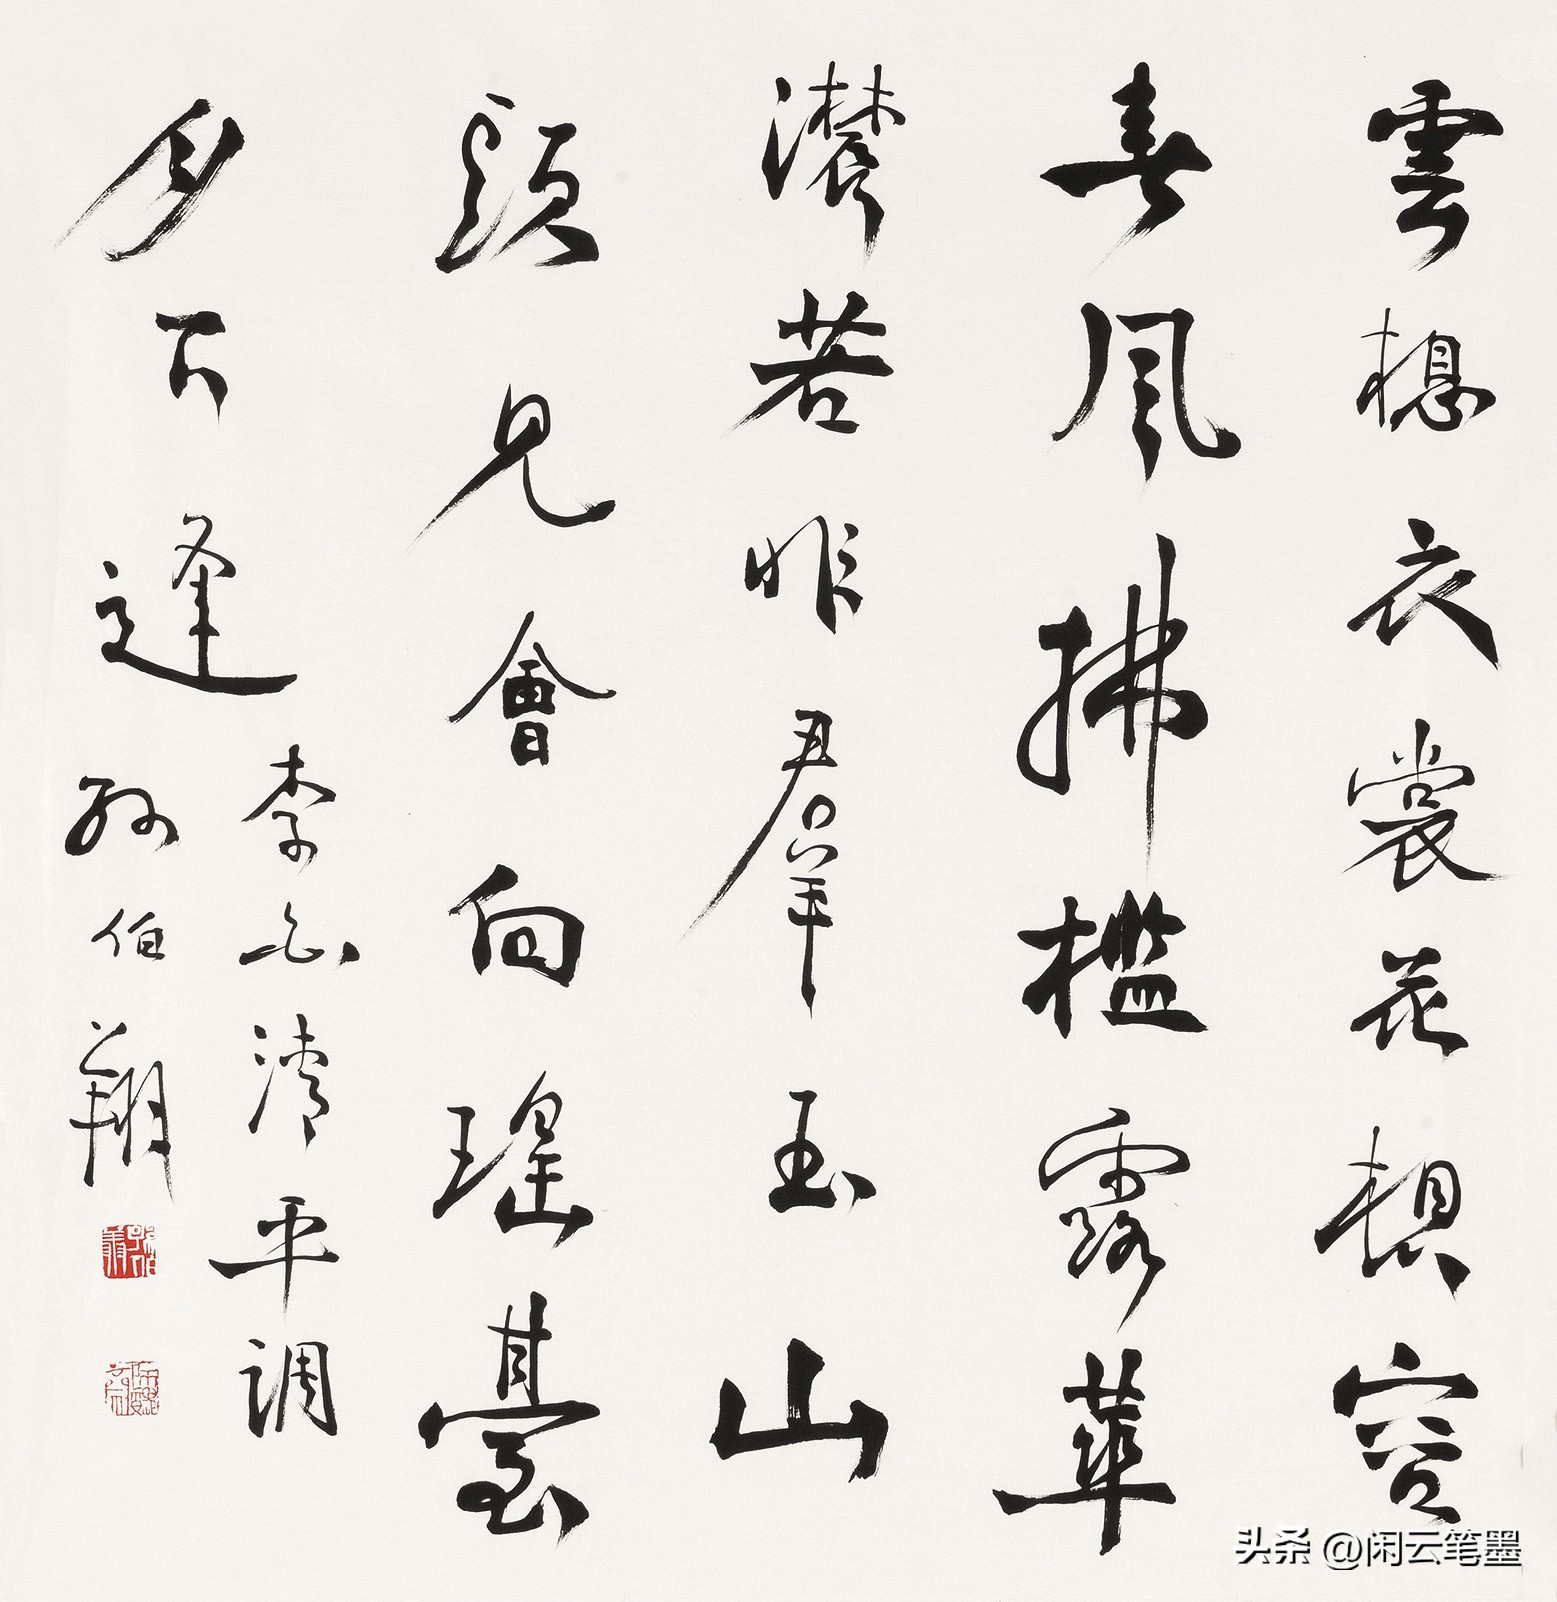 雲想衣裳花想容
春風拂檻露華
濃若非羣玉山
頭見會向瑤臺
月下逢
李白清平調
孫伯翔
头条 @闲云笔墨